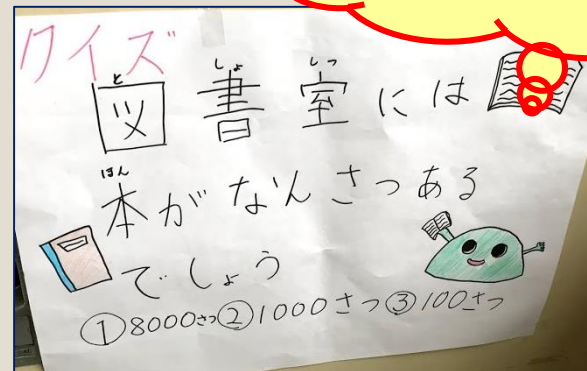 クイズ
図書室には
としょしつ
本がなんさつある
ほん
でしょう
①8000さつ②1000さつ③100さつ